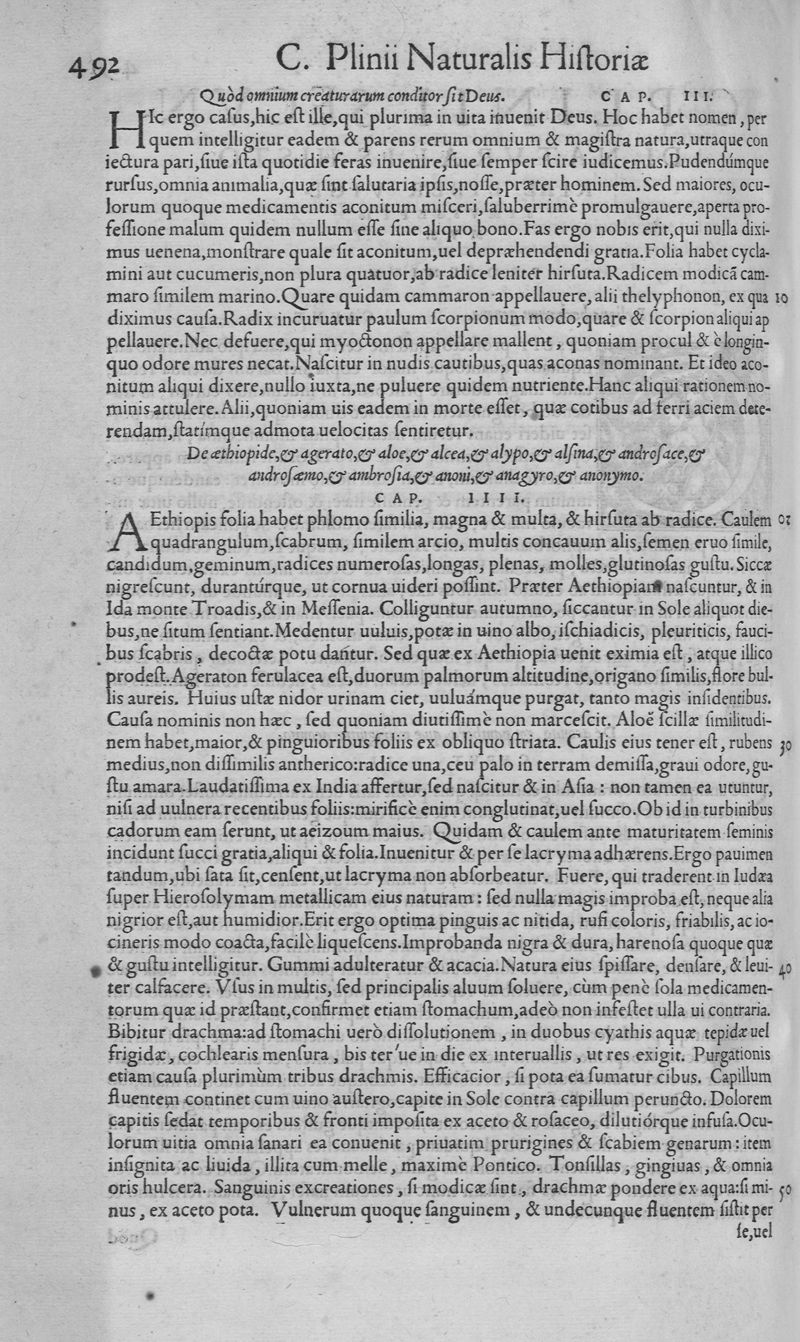 492 C. Plinii Naturalis Hiſtoriæ
Quòd omnium creaturarum conditor ſit Deus. CAP. III.
HIc ergo caſus,hic eſt ille,qui plurima in uita inuenit Deus. Hoc habet nomen, per
quem intelligitur eadem & parens rerum omnium & magiſtra natura,utraque con
iectura pari,ſiue iſta quotidie feras inuenire,ſiue ſemper ſcire iudicemus.Pudendúmque
rurſus,omnia animalia,quæ ſint ſalutaria ipſis,noſſe,præter hominem. Sed maiores, ocu-
lorum quoque medicamentis aconitum miſceri,ſaluberrimè promulgauere,aperta pro-
feſſione malum quidem nullum eſſe ſine aliquo bono.Fas ergo nobis erit,qui nulla dixi-
mus uenena,monſtrare quale ſit aconitum,uel depræhendendi gratia.Folia habet cycla-
mini aut cucumeris,non plura quàtuor,ab radice leniter hirſuta.Radicem modicã cam-
maro ſimilem marino.Quare quidam cammaron appellauere, alii thelyphonon, ex qua 10
diximus cauſa.Radix incuruatur paulum ſcorpionum modo,quare & ſcorpion aliqui ap
pellauere.Nec defuere,qui myoctonon appellare mallent, quoniam procul & è longin-
quo odore mures necat.Naſcitur in nudis cautibus,quas aconas nominant. Et ideo aco-
nitum aliqui dixere,nullo iuxta,ne puluere quidem nutriente.Hanc aliqui rationem no-
minis attulere. Alii,quoniam uis eadem in morte eſſet, quæ cotibus ad ferri aciem dete-
rendam,ſtatímque admota uelocitas ſentiretur.
De æthiopide,& agerato,& aloe,& alcea,& alypo,& alſina,& androſace,&
androſæmo,& ambroſia,& anoni,& anagyro,& anonymo.
CAP. IIII.
AEthiopis folia habet phlomo ſimilia, magna & multa, & hirſuta ab radice. Caulem 02
quadrangulum,ſcabrum, ſimilem arcio, multis concauum alis,ſemen eruo ſimile,
candidum,geminum,radices numeroſas,longas, plenas, molles,glutinoſas guſtu. Siccæ
nigreſcunt, durantúrque, ut cornua uideri poſſint. Præter Aethiopiam naſcuntur, & in
Ida monte Troadis,& in Meſſenia. Colliguntur autumno, ſiccantur in Sole aliquot die-
bus,ne ſitum ſentiant.Medentur uuluis,potæ in uino albo, iſchiadicis, pleuriticis, fauci-
bus ſcabris, decoctæ potu dantur. Sed quæ ex Aethiopia uenit eximia eſt, atque illico
prodeſt.Ageraton ferulacea eſt,duorum palmorum altitudine,origano ſimilis,flore bul-
lis aureis. Huius uſtæ nidor urinam ciet, uuluámque purgat, tanto magis inſidentibus.
Cauſa nominis non hæc, ſed quoniam diutiſſimè non marceſcit. Aloë ſcillæ ſimilitudi-
nem habet,maior,& pinguioribus foliis ex obliquo ſtriata. Caulis eius tener eſt, rubens 30
medius,non diſſimilis antherico:radice una,ceu palo in terram demiſſa,graui odore,gu-
ſtu amara.Laudatiſſima ex India affertur,ſed naſcitur & in Aſia : non tamen ea utuntur,
niſi ad uulnera recentibus foliis:mirificè enim conglutinat,uel ſucco.Ob id in turbinibus
cadorum eam ſerunt, ut aëizoum maius. Quidam & caulem ante maturitatem ſeminis
incidunt ſucci gratia,aliqui & folia.Inuenitur & per ſe lacryma adhærens.Ergo pauimen
tandum,ubi ſata ſit,cenſent,ut lacryma non abſorbeatur. Fuere, qui traderent in Iudæa
ſuper Hieroſolymam metallicam eius naturam : ſed nulla magis improba eſt, neque alia
nigrior eſt,aut humidior.Erit ergo optima pinguis ac nitida, rufi coloris, friabilis, ac io-
cineris modo coacta,facilè liqueſcens.Improbanda nigra & dura, harenoſa quoque quæ
& guſtu intelligitur. Gummi adulteratur & acacia.Natura eius ſpiſſare, denſare, & leui- 40
ter calfacere. Vſus in multis, ſed principalis aluum ſoluere, cùm penè ſola medicamen-
torum quæ id præſtant,confirmet etiam ſtomachum,adeò non infeſtet ulla ui contraria.
Bibitur drachma:ad ſtomachi uerò diſſolutionem, in duobus cyathis aquæ tepidæ uel
frigidæ, cochlearis menſura, bis ter'ue in die ex interuallis, ut res exigit. Purgationis
etiam cauſa plurimùm tribus drachmis. Efficacior, ſi pota ea ſumatur cibus. Capillum
fluentem continet cum uino auſtero,capite in Sole contra capillum peruncto. Dolorem
capitis ſedat temporibus & fronti impoſita ex aceto & roſaceo, dilutiórque infuſa.Ocu-
lorum uitia omnia ſanari ea conuenit, priuatim prurigines & ſcabiem genarum : item
inſignita ac liuida, illita cum melle, maximè Pontico. Tonſillas, gingiuas, & omnia
oris hulcera. Sanguinis excreationes, ſi modicæ ſint, drachmæ pondere ex aqua:ſi mi- 50
nus, ex aceto pota. Vulnerum quoque ſanguinem, & undecunque fluentem ſiſtit per
ſe,uel